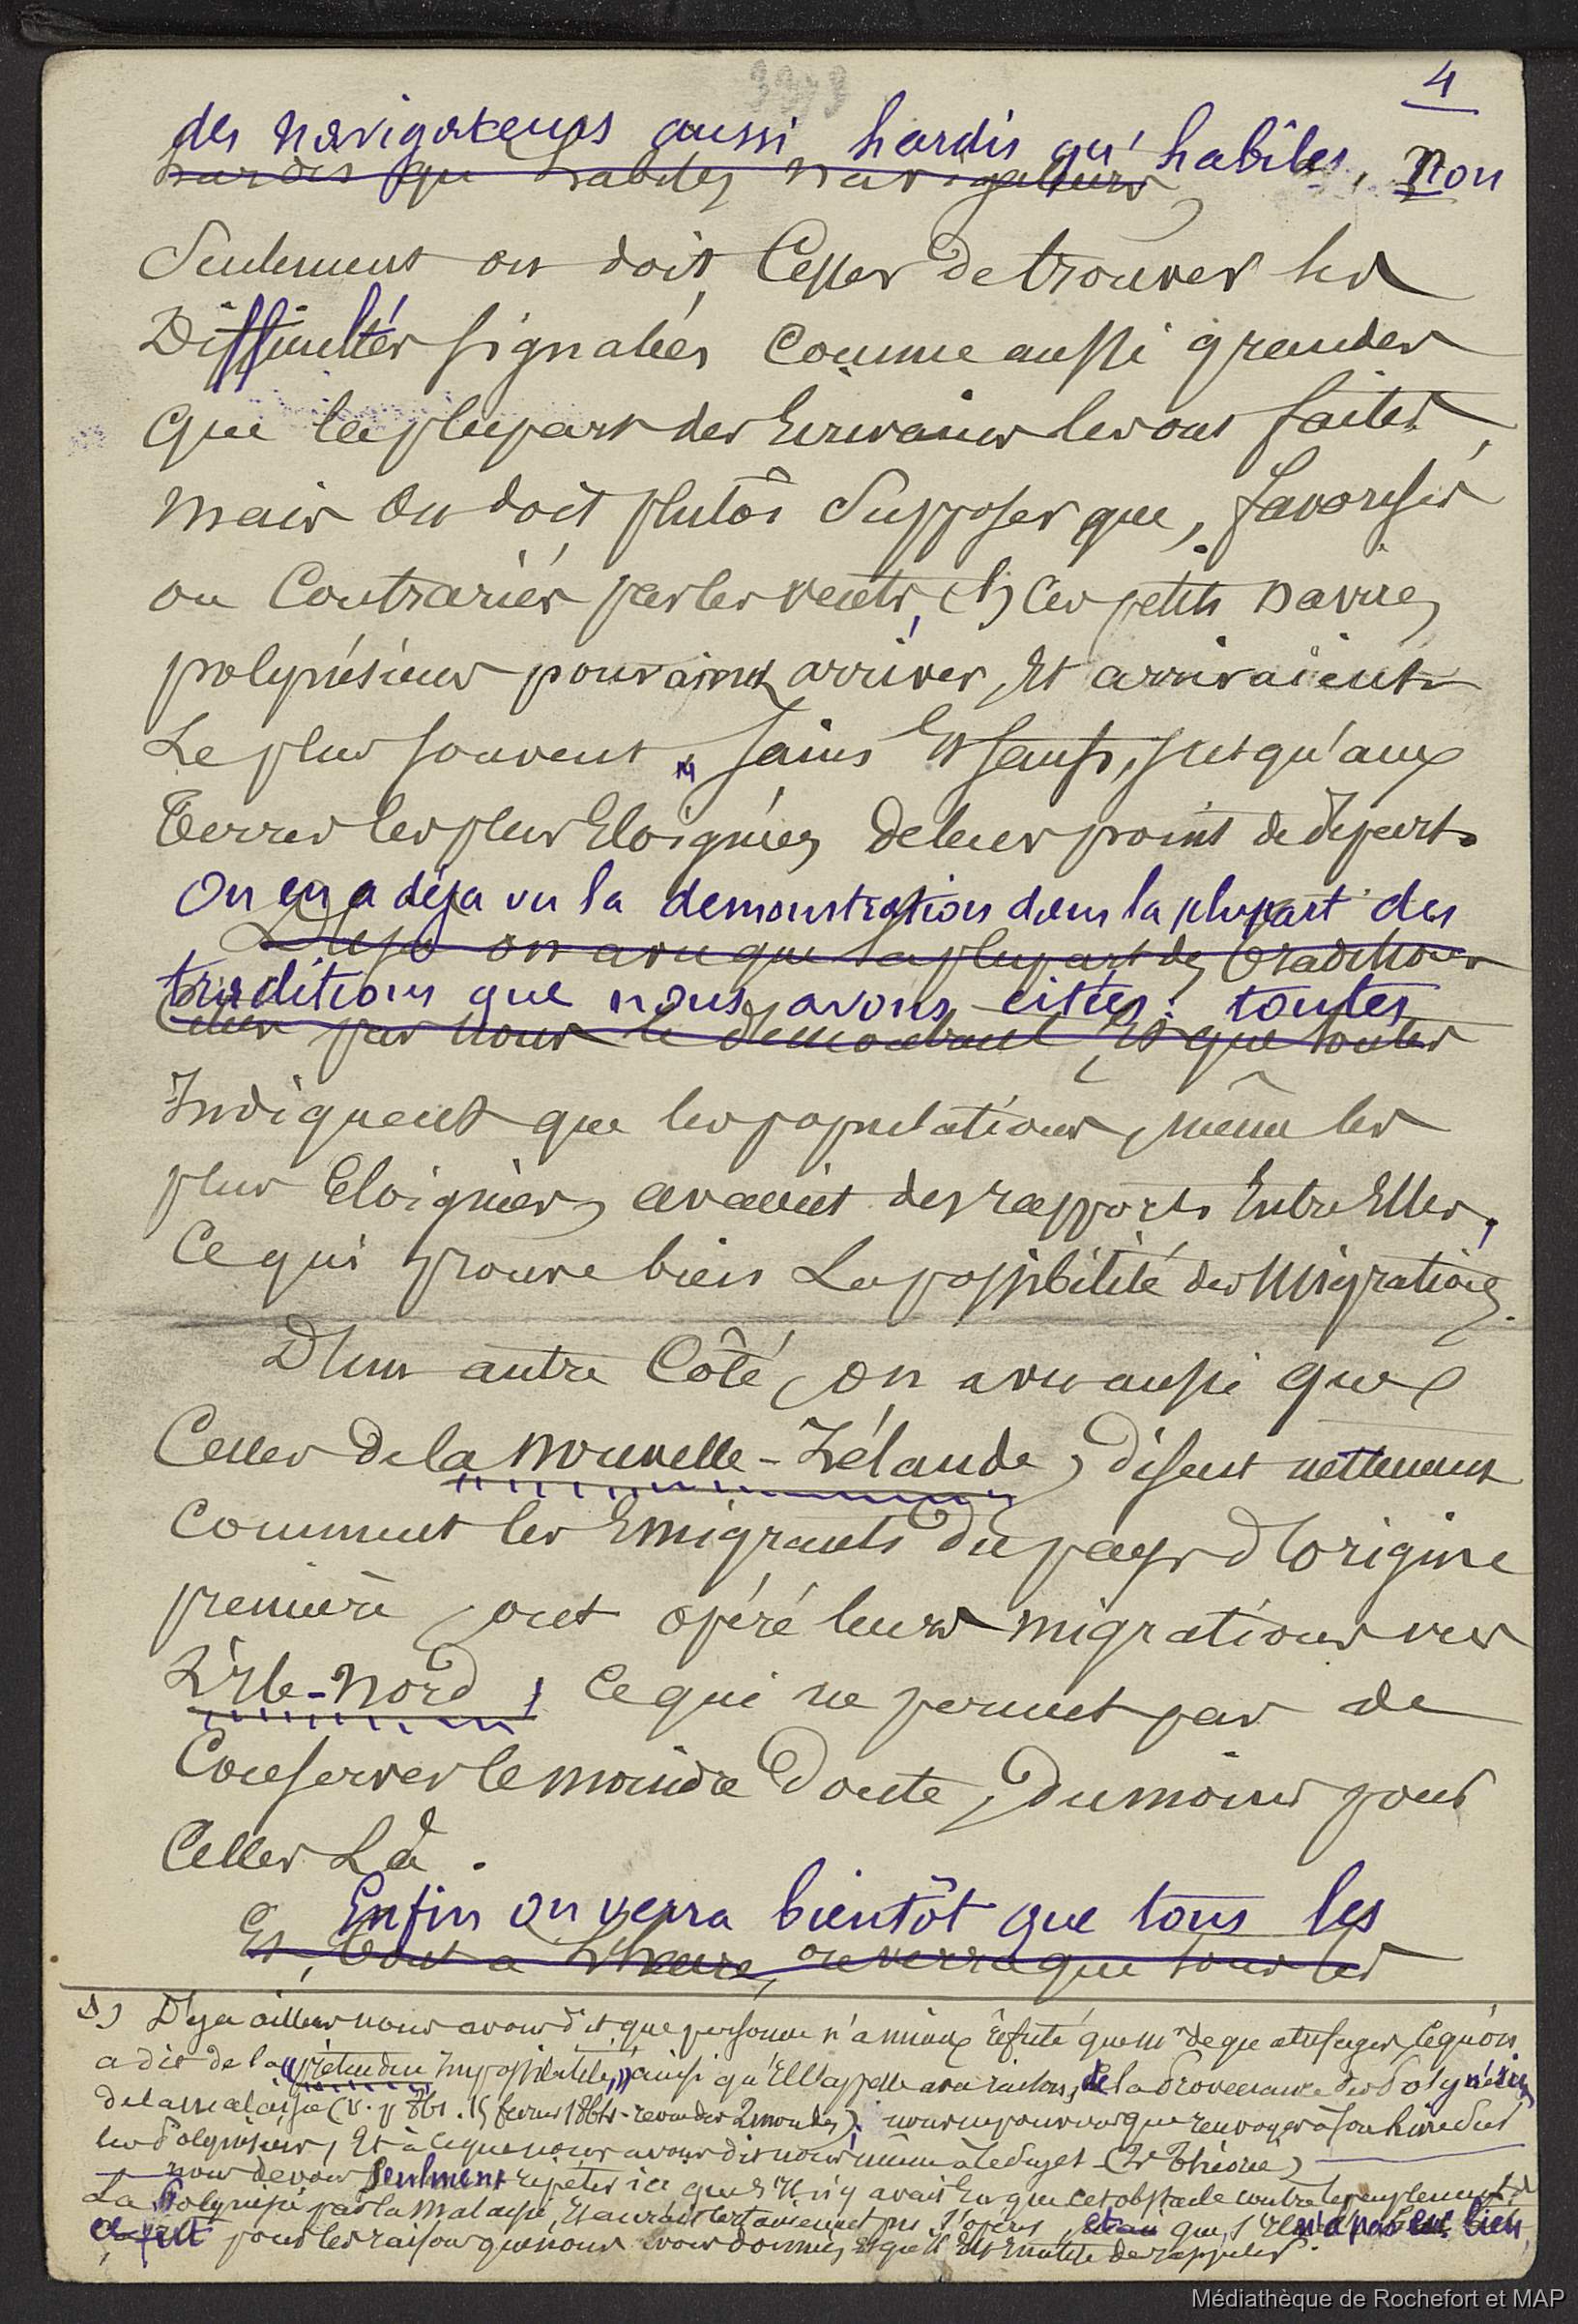 3993
4
des navigateurs aussi hardis qu'habiles, non
hardis que habiles navigateurs,
Seulement on doit Cesser de trouver les
Difficultés signalées comme aussi grandes
que la plupart des Ecrivains les ont faites,
mais on doit plutôt Supposer que, favorisés
ou Contrariés par les vents, (1) ces petits navires
polynésiens pouvaient arriver, et arrivaient
Le plus souvent, sains et saufs, jusqu'aux
Terres les plus Eloignées de leur point de départ.
On en a déja vu la demonstration dans la plupart des
Déja on a vu que la plupart des traditions
traditions que nous avons citées: toutes
Citées par nous le démontrent, et que toutes
Indiquent que les populations, même les
plus Eloignées, avaient des rapports Entre Elles,
Ce qui prouve bien La possibilité des Migrations.
D'un autre Côté, on a vu aussi que
Celles de la Nouvelle-Zélande, disent nettement
Comment les Emigrants du pays d'origine
première, ont opéré leurs migrations vers
L'Ile-Nord, Ce qui ne permet pas de
Conserver le moindre doute, du moins pour
Celles Là.
Enfin on verra bientôt que tous les
Et, tout à L'heure, on verra que tous les
1) Déja ailleurs nous avons dit que personne n'a mieux réfuté que Mr de Quatrefages, ce qu'on
a dit de la "prétendue Impossibilité," ainsi qu'Il l'appelle avec raison, de la Provenance des Polynésiens
de la Malaisie (v. p. 861. 15 février 1864 - revue des 2 mondes). nous ne pouvons que renvoyer à son livre sur
les Polynésiens, Et à ce que nous avons dit nous même à ce sujet (Théorie)
nous devons seulement répéter ici que s'Il n'y avait Eu que cet obstacle contre le peuplement de
La Polynésie par la Malaisie, Il aurait certainement pu s'opérer, et que, s'Il n'a pas eu lieu,
c'est pour les raisons que nous avons données, et qu'il est inutile de rappeler.
Médiathèque de Rochefort et MAP